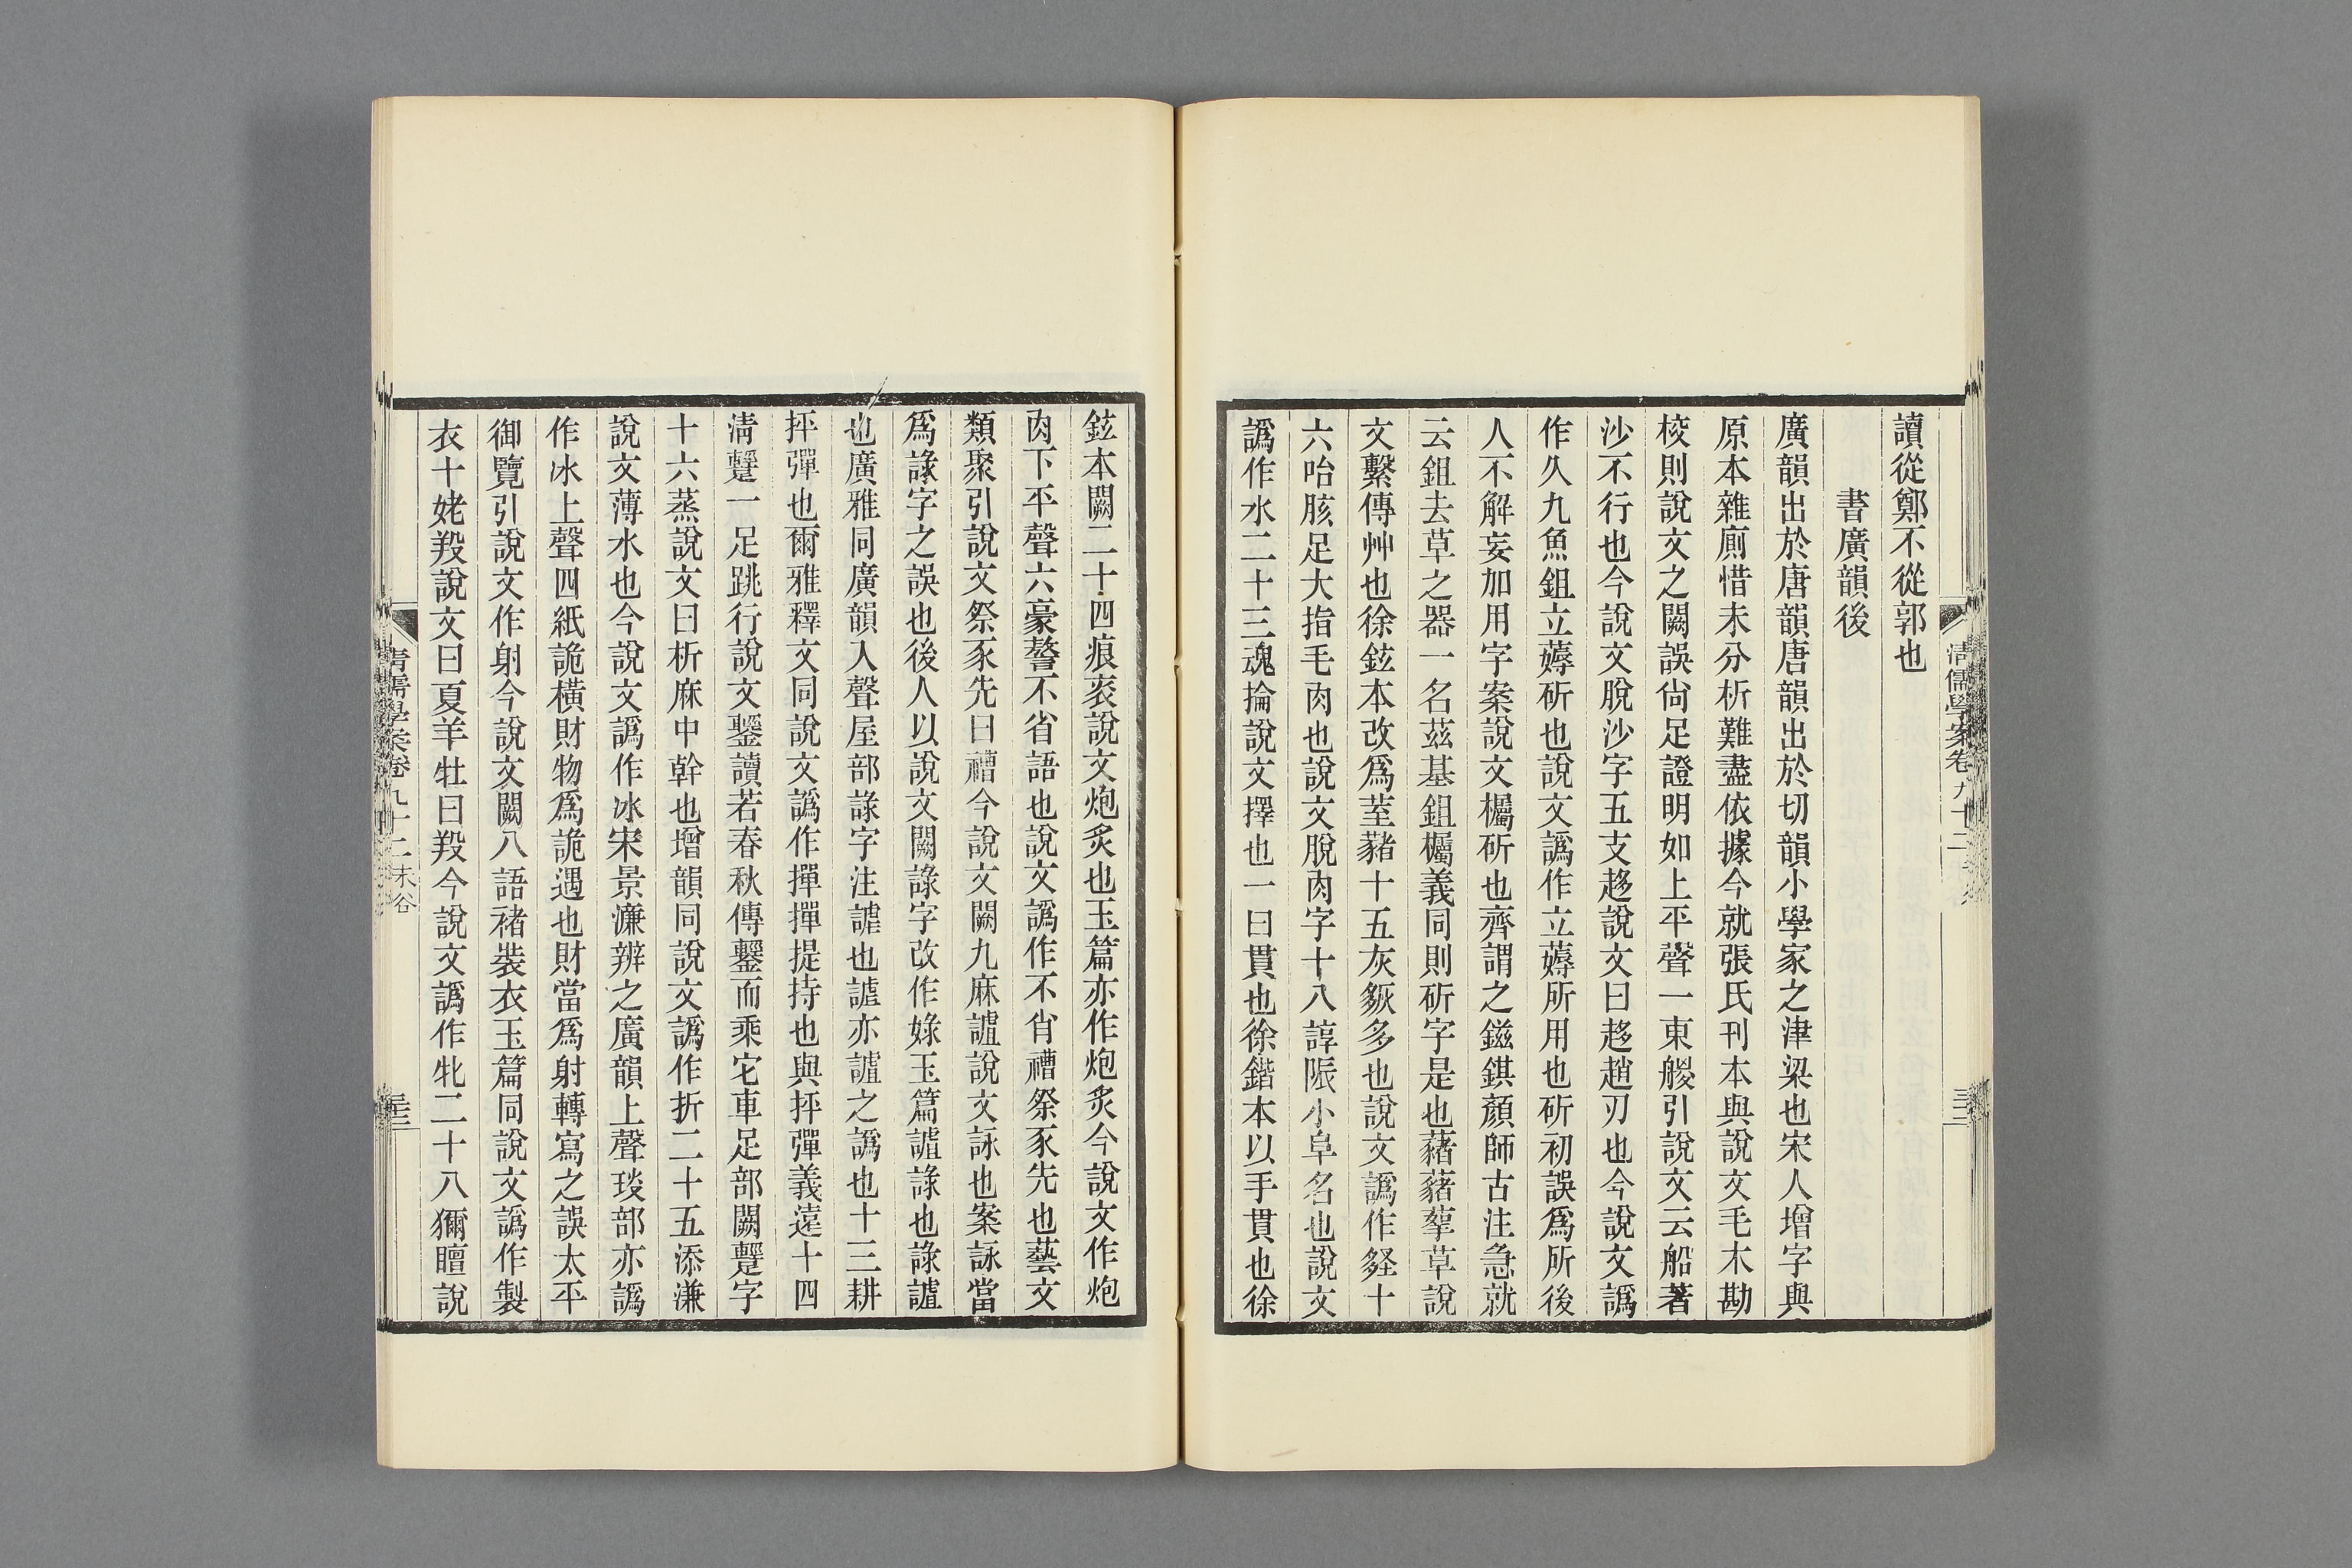 讀從鄭不從郭也
書廣韻後
廣韻出於唐韻唐韻出於切韻小學家之津梁也宋人增字與
原本雜廁惜未分析難盡依據今就張氏刊本與說文毛木勘
校則說文之闕誤尙足證明如上平聲一東艐引說文云船著
沙不行也今說文脫沙字五支趍說文曰趍趙夂也今說文譌
作久九魚鉏立薅斫也說文譌作立薅所用也斫初誤爲所後
人不解妄加用字案說文欘斫也齊謂之鎡錤顏師古注急就
云鉏去草之器一名茲基鉏欘義同則斫字是也藸藸蒘草說
文繫傳艸也徐鉉本改爲荎藸十五灰𧱓多也說文譌作𡖉十
六咍胲足大指毛肉也說文脫肉字十八諄陙小阜名也說文
譌作水二十三魂掄說文擇也一曰貫也徐鍇本以手貫也徐
鉉本闕二十四痕衮說文炮炙也玉篇亦作炮炙今說文作炮
肉下平聲六豪謷不省語也說文譌作不肖禮祭豕先也藝文
類聚引說文祭豕先曰禮今說文闕九麻謯說文詠也案詠當
爲諑字之誤也後人以說文闕諑字改作娽玉篇謯諑也諑謯
也廣雅同廣韻入聲屋部諑字注謔也謔亦謯之譌也十三耕
抨彈也爾雅釋文同說文譌作撣撣提持也與抨彈義遠十四
淸𨇱一足跳行說文䥯讀若春秋傳𨇱而乘它車足部闕𨇱字
十六蒸說文曰析麻中幹也增韻同說文譌作折二十五添溓
說文薄水也今說文譌作冰宋景濂辨之廣韻上聲琰部亦譌
作冰上聲四紙詭橫財物爲詭遇也財當爲射轉寫之誤太平
御覽引說文作射今說文闕八語褚裝衣玉篇同說文譌作製
衣十姥羖說文曰夏羊牡曰羖今說文譌作牝二十八獮膻說
清儒學案卷九十二
清儒學案卷九十二 未谷